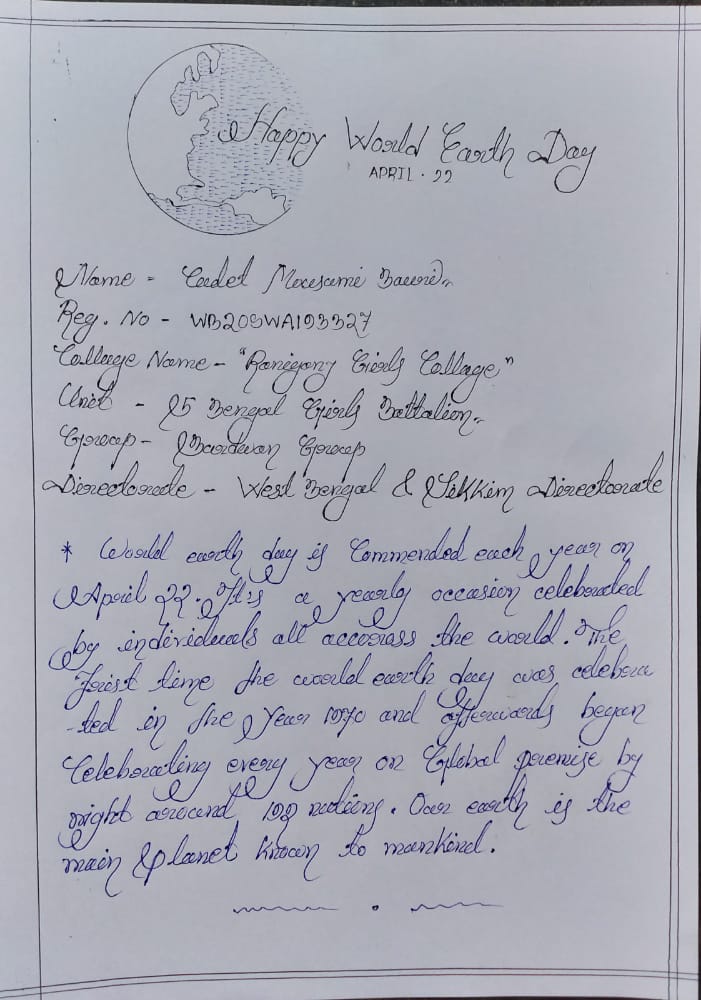 Happy World Earth Day
APRIL. 22
Name - Cadet Mousumi Bauri
Reg. No - WB20SWA193327
Collage Name - "Ranigong Girls Collage"
Unit - 25 Bengal Girls Battalion
Group - Bardwan Group
Directorate - West Bengal & Sikkim Directorate
* World earth day is Commended each year on
April 22. It is a yearly occasion celebrated
by individuals all accross the world. The
first time the world earth day was celebra
-ted in the year 1970 and afterwards began
Celebrating every year on Global premise by
right around 192 nations. Our earth is the
main planet known to mankind.